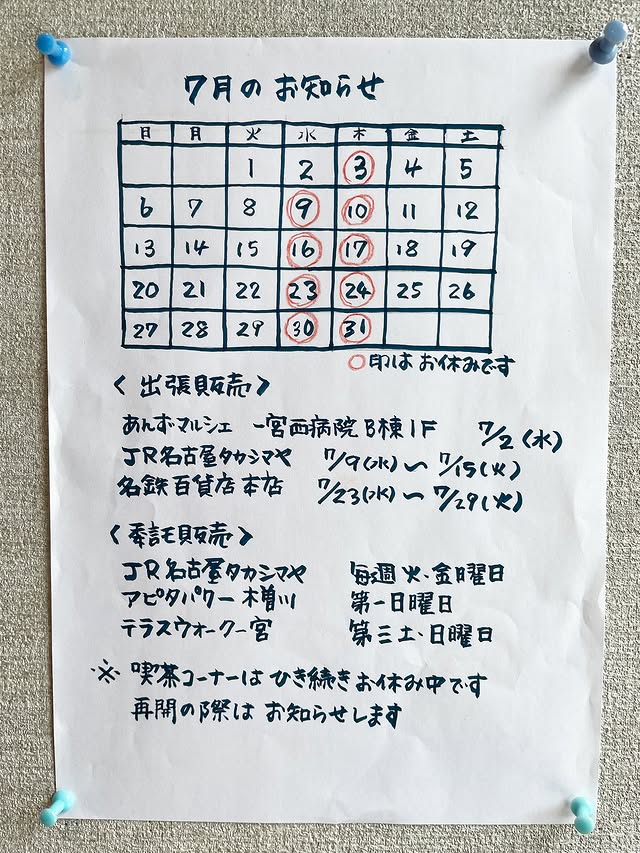 7月のお知らせ
日 月 火 水 木 金 土
1 2 3 4 5
6 7 8 9 10 11 12
13 14 15 16 17 18 19
20 21 22 23 24 25 26
27 28 29 30 31
○印はお休みです
〈出張販売〉
あんず・マルシェ 一宮西病院B棟1F 7/2(水)
JR名古屋タカシマヤ 7/9(水)〜7/15(火)
名鉄百貨店本店 7/23(水)〜7/29(火)
〈委託販売〉
JR名古屋タカシマヤ 毎週火・金曜日
アピタパワー木曽川 第一日曜日
テラスウォーク一宮 第三土・日曜日
※喫茶コーナーはひき続きお休み中です
再開の際はお知らせします